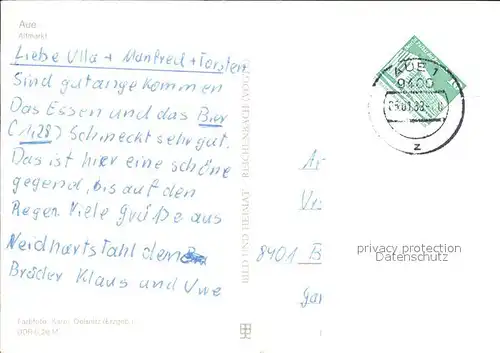 Aue
Altmarkt
Liebe Ulla + Manfred + Torsten
Sind gut angekommen
Das Essen und das Bier
(1,28) Schmeckt sehr gut.
Das ist hier eine schöne
gegend, bis auf den
Regen. Viele Grüße aus
Neidhartstahl der
Brüder Klaus und Uwe
BILD UND HEIMAT REICHENBACH (VOGTL)
AUE 1
9400
z
8401 B
privacy protection
Datenschutz